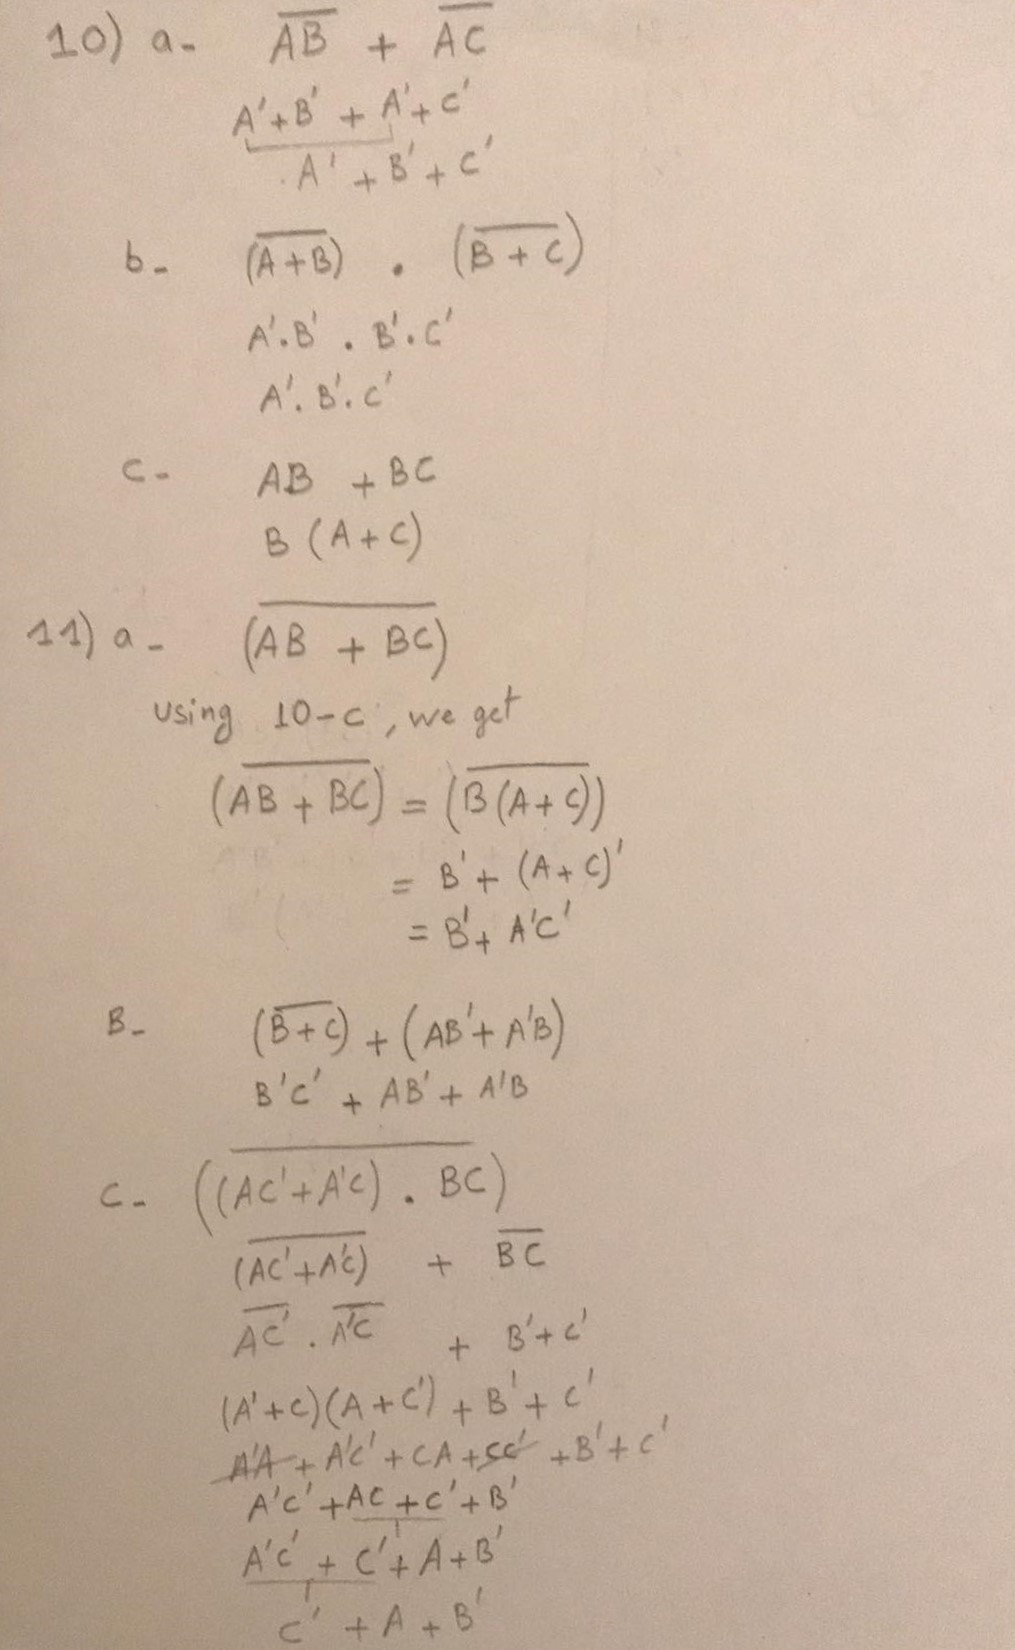 10) a- A̅B̅ + A̅C̅
A'+B' + A'+C'
A' + B' + C'
b- (A̅+̅B̅) . (B̅+̅C̅)
A'.B' . B'.C'
A'. B'. C'
C- AB + BC
B (A+C)
11) a- (A̅B̅ ̅+̅ ̅B̅C̅)
using 10-c, we get
(A̅B̅ ̅+̅ ̅B̅C̅) = (B̅(̅A̅+̅C̅)̅)
= B' + (A+C)'
= B'+ A'C'
B- (B̅+̅C̅) + (AB'+ A'B)
B'C' + AB' + A'B
C- ((̅A̅C̅'̅+̅A̅'̅C̅)̅ ̅.̅ ̅B̅C̅)
(A̅C̅'̅+̅A̅'̅C̅) + B̅C̅
A̅C̅'̅ . A̅'̅C̅ + B'+C'
(A'+C)(A+C') + B' + C'
A'A + A'C' + CA + CC' + B' + C'
A'C' + AC + C' + B'
A'C' + C' + A + B'
C' + A + B'